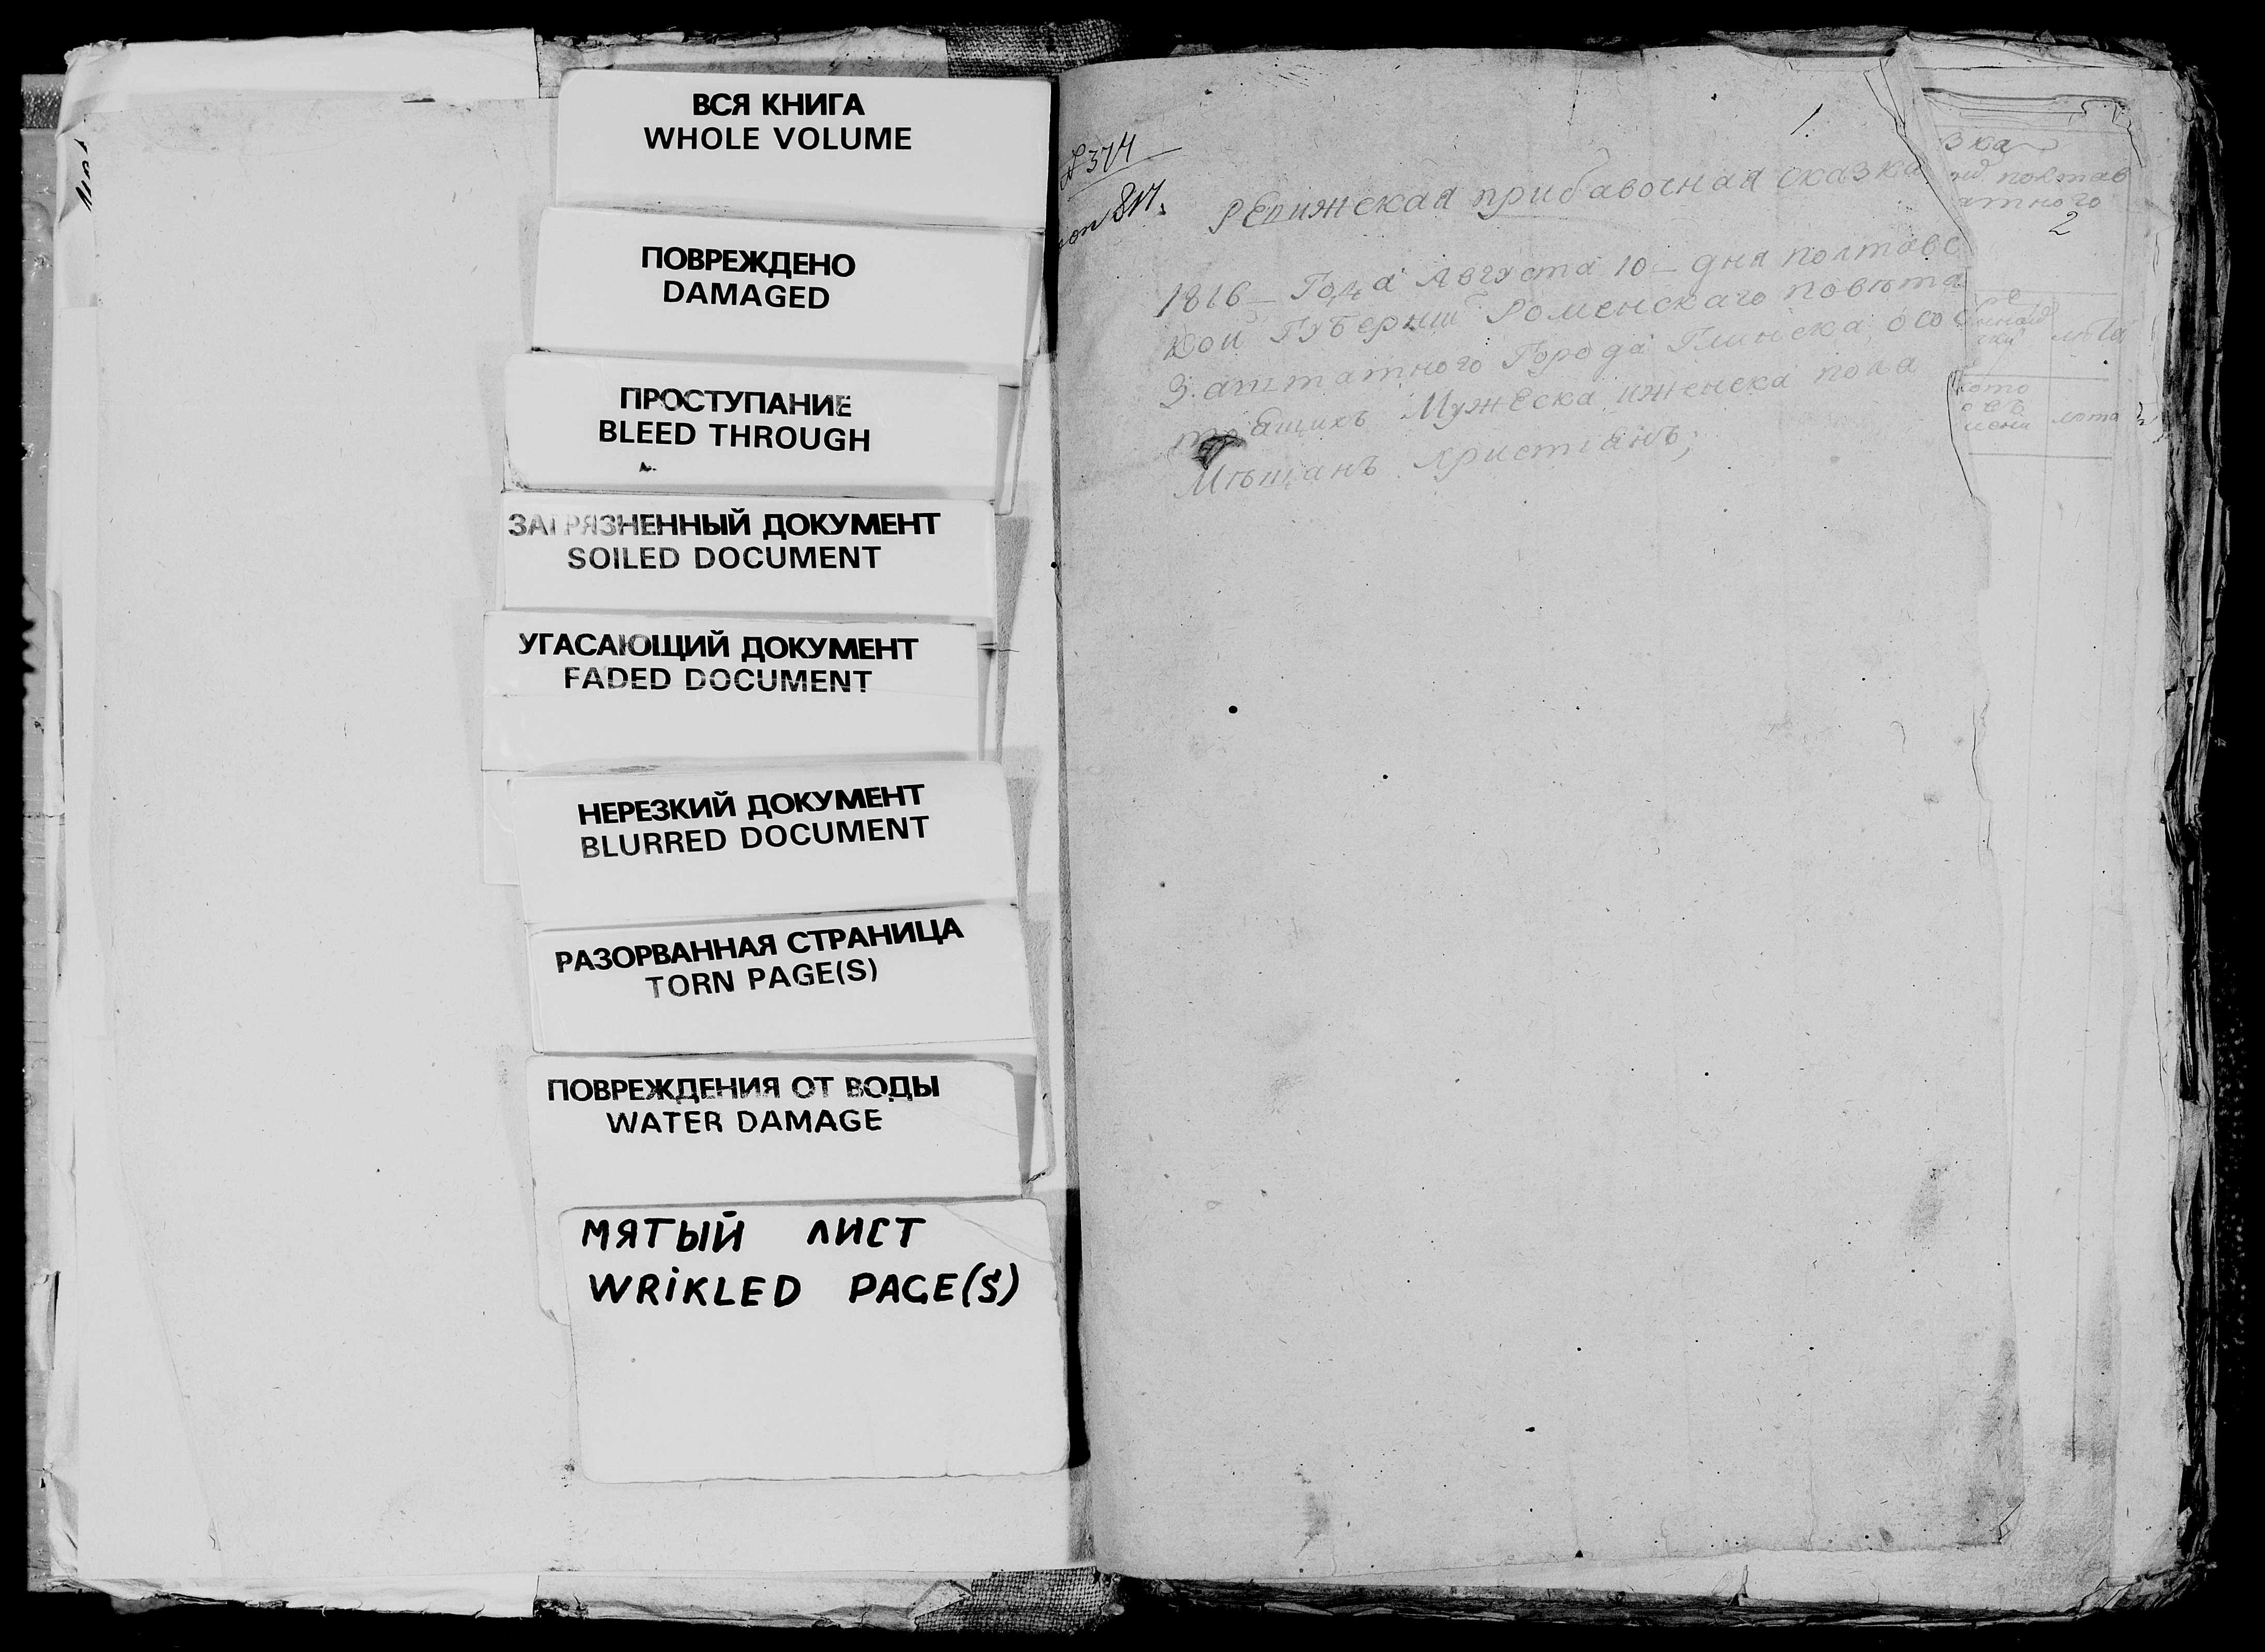 ВСЯ КНИГА
WHOLE VOLUME
ПОВРЕЖДЕНО
DAMAGED
ПРОСТУПАНИЕ
BLEED THROUGH
ЗАГРЯЗНЕННЫЙ ДОКУМЕНТ
SOILED DOCUMENT
УГАСАЮЩИЙ ДОКУМЕНТ
FADED DOCUMENT
НЕРЕЗКИЙ ДОКУМЕНТ
BLURRED DOCUMENT
РАЗОРВАННАЯ СТРАНИЦА
TORN PAGE(S)
ПОВРЕЖДЕНИЯ ОТ ВОДЫ
WATER DAMAGE
МЯТЫЙ ЛИСТ
WRIKLED PAGE(S)
1.
374
817.
прибавочная сказка
1816 – Года Августа 10 – дня полтавс
кой Губернии Роменскаго повѣта
Заштатного Города Глинска, о со
Мужеска иженска пола
Мѣщанъ христіянъ;
зка
полтав
атного
2
лѣта
лѣта